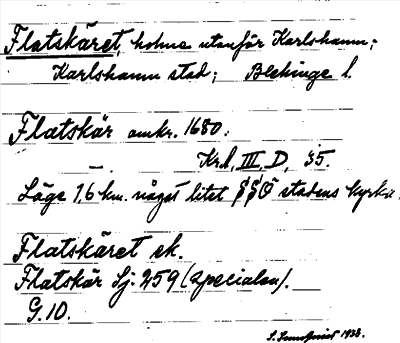 Flatskäret, holme utanför Karlshamn;
Karlshamn stad; Blekinge l.
Flatskär omkr. 1680.
— Kr. III, D, 35.
Läge 1,6 km. något litet SSO stadens kyrka.
Flatskäret ek.
Flatskär Sj. 259 (specialen).
G. 10.
S. 1938.